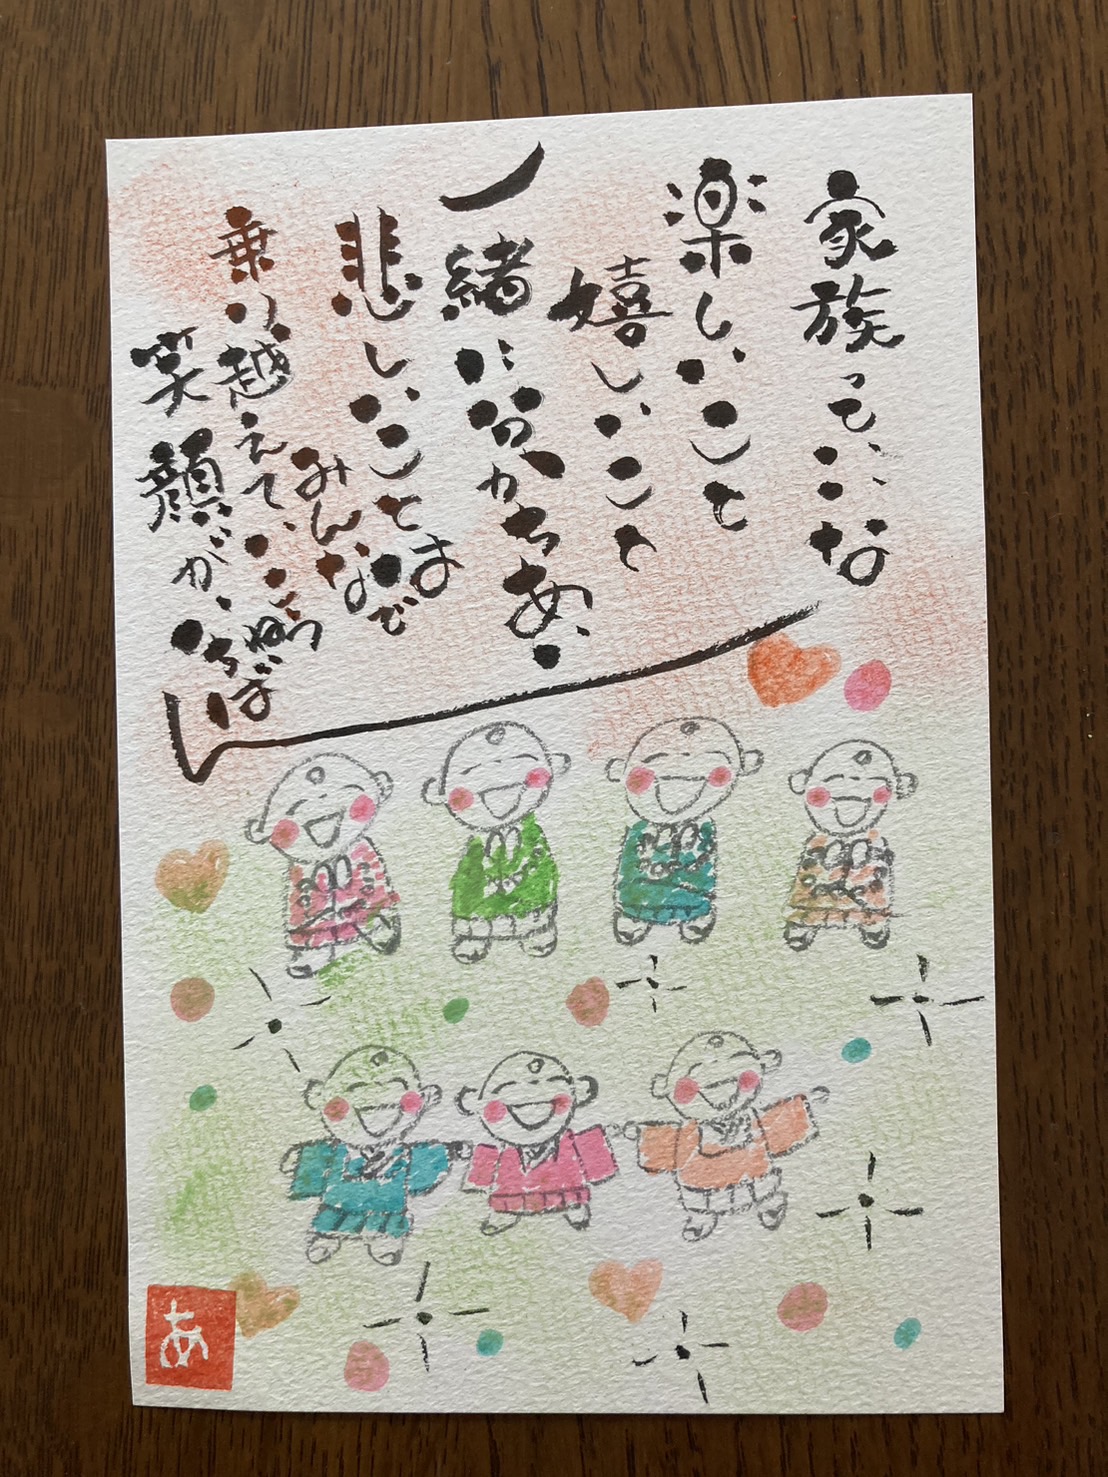 家族っていいな
楽しいこと
嬉しいこと
一緒に分かちあい
悲しいことは
みんなで
乗り越えていこうね
笑顔がいちばん
あ